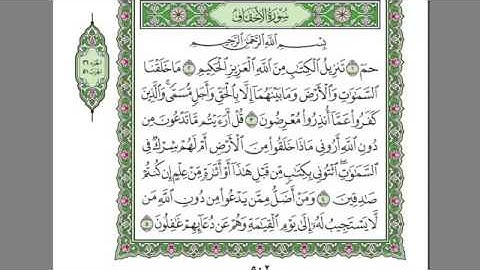 سُورَةُ الأَحْقَافِ
بِسْمِ اللَّهِ الرَّحْمَٰنِ الرَّحِيمِ
حمٓ ١ تَنزِيلُ ٱلْكِتَٰبِ مِنَ ٱللَّهِ ٱلْعَزِيزِ ٱلْحَكِيمِ ٢ مَا خَلَقْنَا
ٱلسَّمَٰوَٰتِ وَٱلْأَرْضَ وَمَا بَيْنَهُمَآ إِلَّا بِٱلْحَقِّ وَأَجَلٍ مُّسَمًّى وَٱلَّذِينَ
كَفَرُوا۟ عَمَّآ أُنذِرُوا۟ مُعْرِضُونَ ٣ قُلْ أَرَءَيْتُم مَّا تَدْعُونَ مِن
دُونِ ٱللَّهِ أَرُونِى مَاذَا خَلَقُوا۟ مِنَ ٱلْأَرْضِ أَمْ لَهُمْ شِرْكٌ فِى
ٱلسَّمَٰوَٰتِ ٱئْتُونِى بِكِتَٰبٍ مِّن قَبْلِ هَٰذَآ أَوْ أَثَٰرَةٍ مِّنْ عِلْمٍ إِن كُنتُمْ
صَٰدِقِينَ ٤ وَمَنْ أَضَلُّ مِمَّن يَدْعُوا۟ مِن دُونِ ٱللَّهِ مَن
لَّا يَسْتَجِيبُ لَهُۥٓ إِلَىٰ يَوْمِ ٱلْقِيَٰمَةِ وَهُمْ عَن دُعَآئِهِمْ غَٰفِلُونَ ٥
٥٠٢
الجزء ٢٦
الحزب ٥١